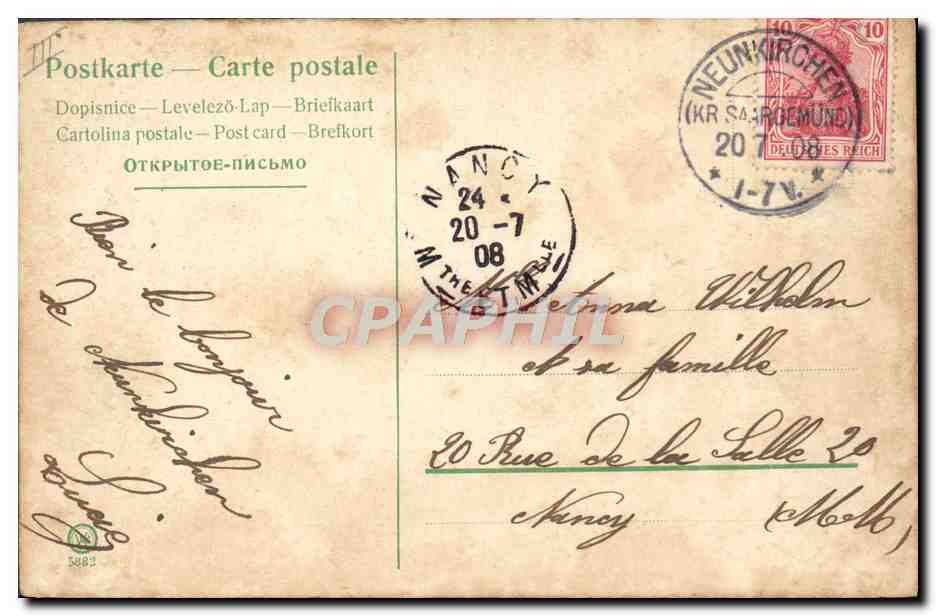 III
Postkarte — Carte postale
Dopisnice — Levelező-Lap — Briefkaart
Cartolina postale — Post card — Brefkort
Открытое-письмо
10 10
DEUTSCHES REICH
NEUNKIRCHEN
(KR SAARGEMÜND)
20 7 08
* 1-7 V. *
NANCY
24
20 - 7
08
MTHE ET MLLE
CPAPHIL
Bien le bonjour
de Neunkirchen
Anna Wilhelm
& sa famille
20 Rue de la Salle 20
Nancy (M M)
5882